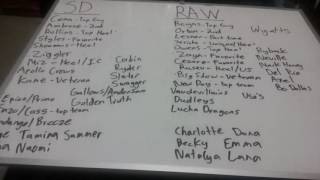 SD
Cena - Top Guy
Ambrose - 2nd
Rollins - Top Heel
Styles - Favorite
Ziggler
Miz - Heel/IC
Apollo Crews
Kane - Veteran
Corbin
Ryder
Slater
Swagger
Gallows/Anderson
Golden Truth
Epico/Primo
Enzo/Cass - top team
Fandango/Breeze
Tamina Summer
Naomi
RAW
Reigns - Top Guy
Orton - 2nd
Lesnar - Part time
Owens - Top Heel
Zayn - Favorite
Cesaro - Favorite
Rusev - Heel/US
Big Show - Veteran
New Day - Top team
Vaudevillains
Dudleys
Lucha Dragons
Wyatts
Ryback
Neville
Del Rio
Bo Dallas
Uso's
Charlotte Dana
Becky Emma
Natalya Lana